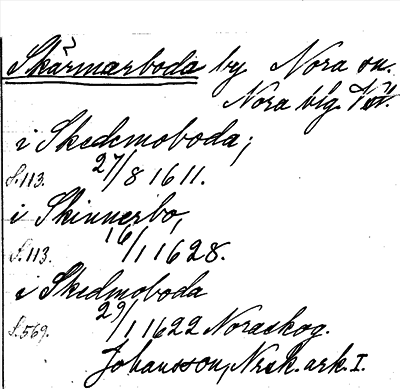 Skärmarboda by Nora sn.
Nora blg.
i Skedemoboda;
S.113. 27/8 1611.
i Skinnerbo,
S.113. 16/1 1628.
i Skedmoboda
S.569. 29/1 1622 Noraskog.
Johansson, Nrsk. ark. I.